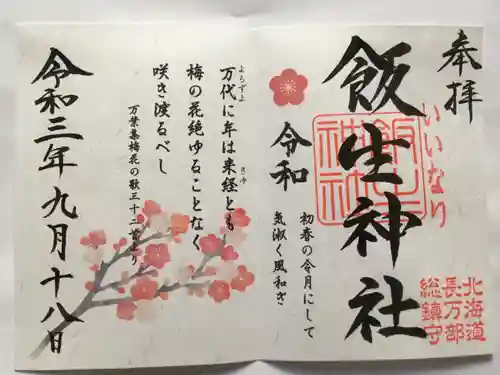 奉拝
いいなり
飯生神社
北海道
長万部
総鎮守
令和
初春の令月にして
気淑く風和ぎ
よろずよ
万代に年は来経とも
きゆ
梅の花絶ゆることなく
咲き渡るべし
万葉集梅花の歌三十二首より
令和三年九月十八日